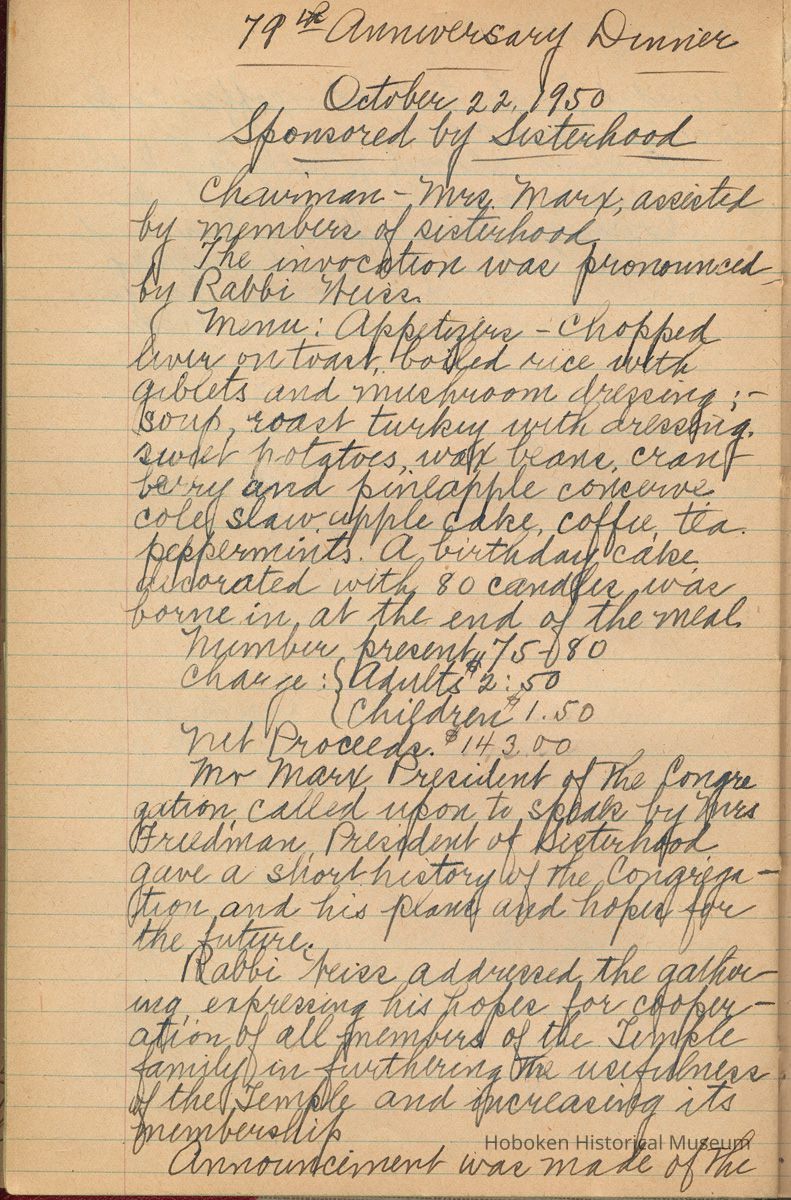 79th Anniversary Dinner
October 22, 1950
Sponsored by Sisterhood
Chairman - Mrs. Marx, assisted
by members of sisterhood
The invocation was pronounced
by Rabbi Weiss.
Menu: Appetizers - Chopped
liver on toast, boiled rice with
giblets and mushroom dressing; -
soup, roast turkey with dressing,
sweet potatoes, wax beans, cran-
berry and pineapple conserve
cole slaw, apple cake, coffee, tea.
peppermints. A birthday cake,
decorated with 80 candles, was
borne in at the end of the meal.
Number present, 75-80
Charge: { Adults $2.50
{ Children $1.50
Net Proceeds. $143.00
Mr Marx President of the Congre
gation, called upon to speak by Mrs
Friedman, President of Sisterhood
gave a short history of the Congrega-
tion, and his plans and hopes for
the future.
Rabbi Weiss addressed the gather-
ing, expressing his hopes for cooper-
ation of all members of the Temple
family in furthering the usefulness
of the Temple and increasing its
membership
Announcement was made of the
Hoboken Historical Museum